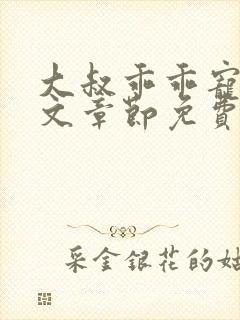 大叔乖乖寵
文章節免費
采金銀花的姑